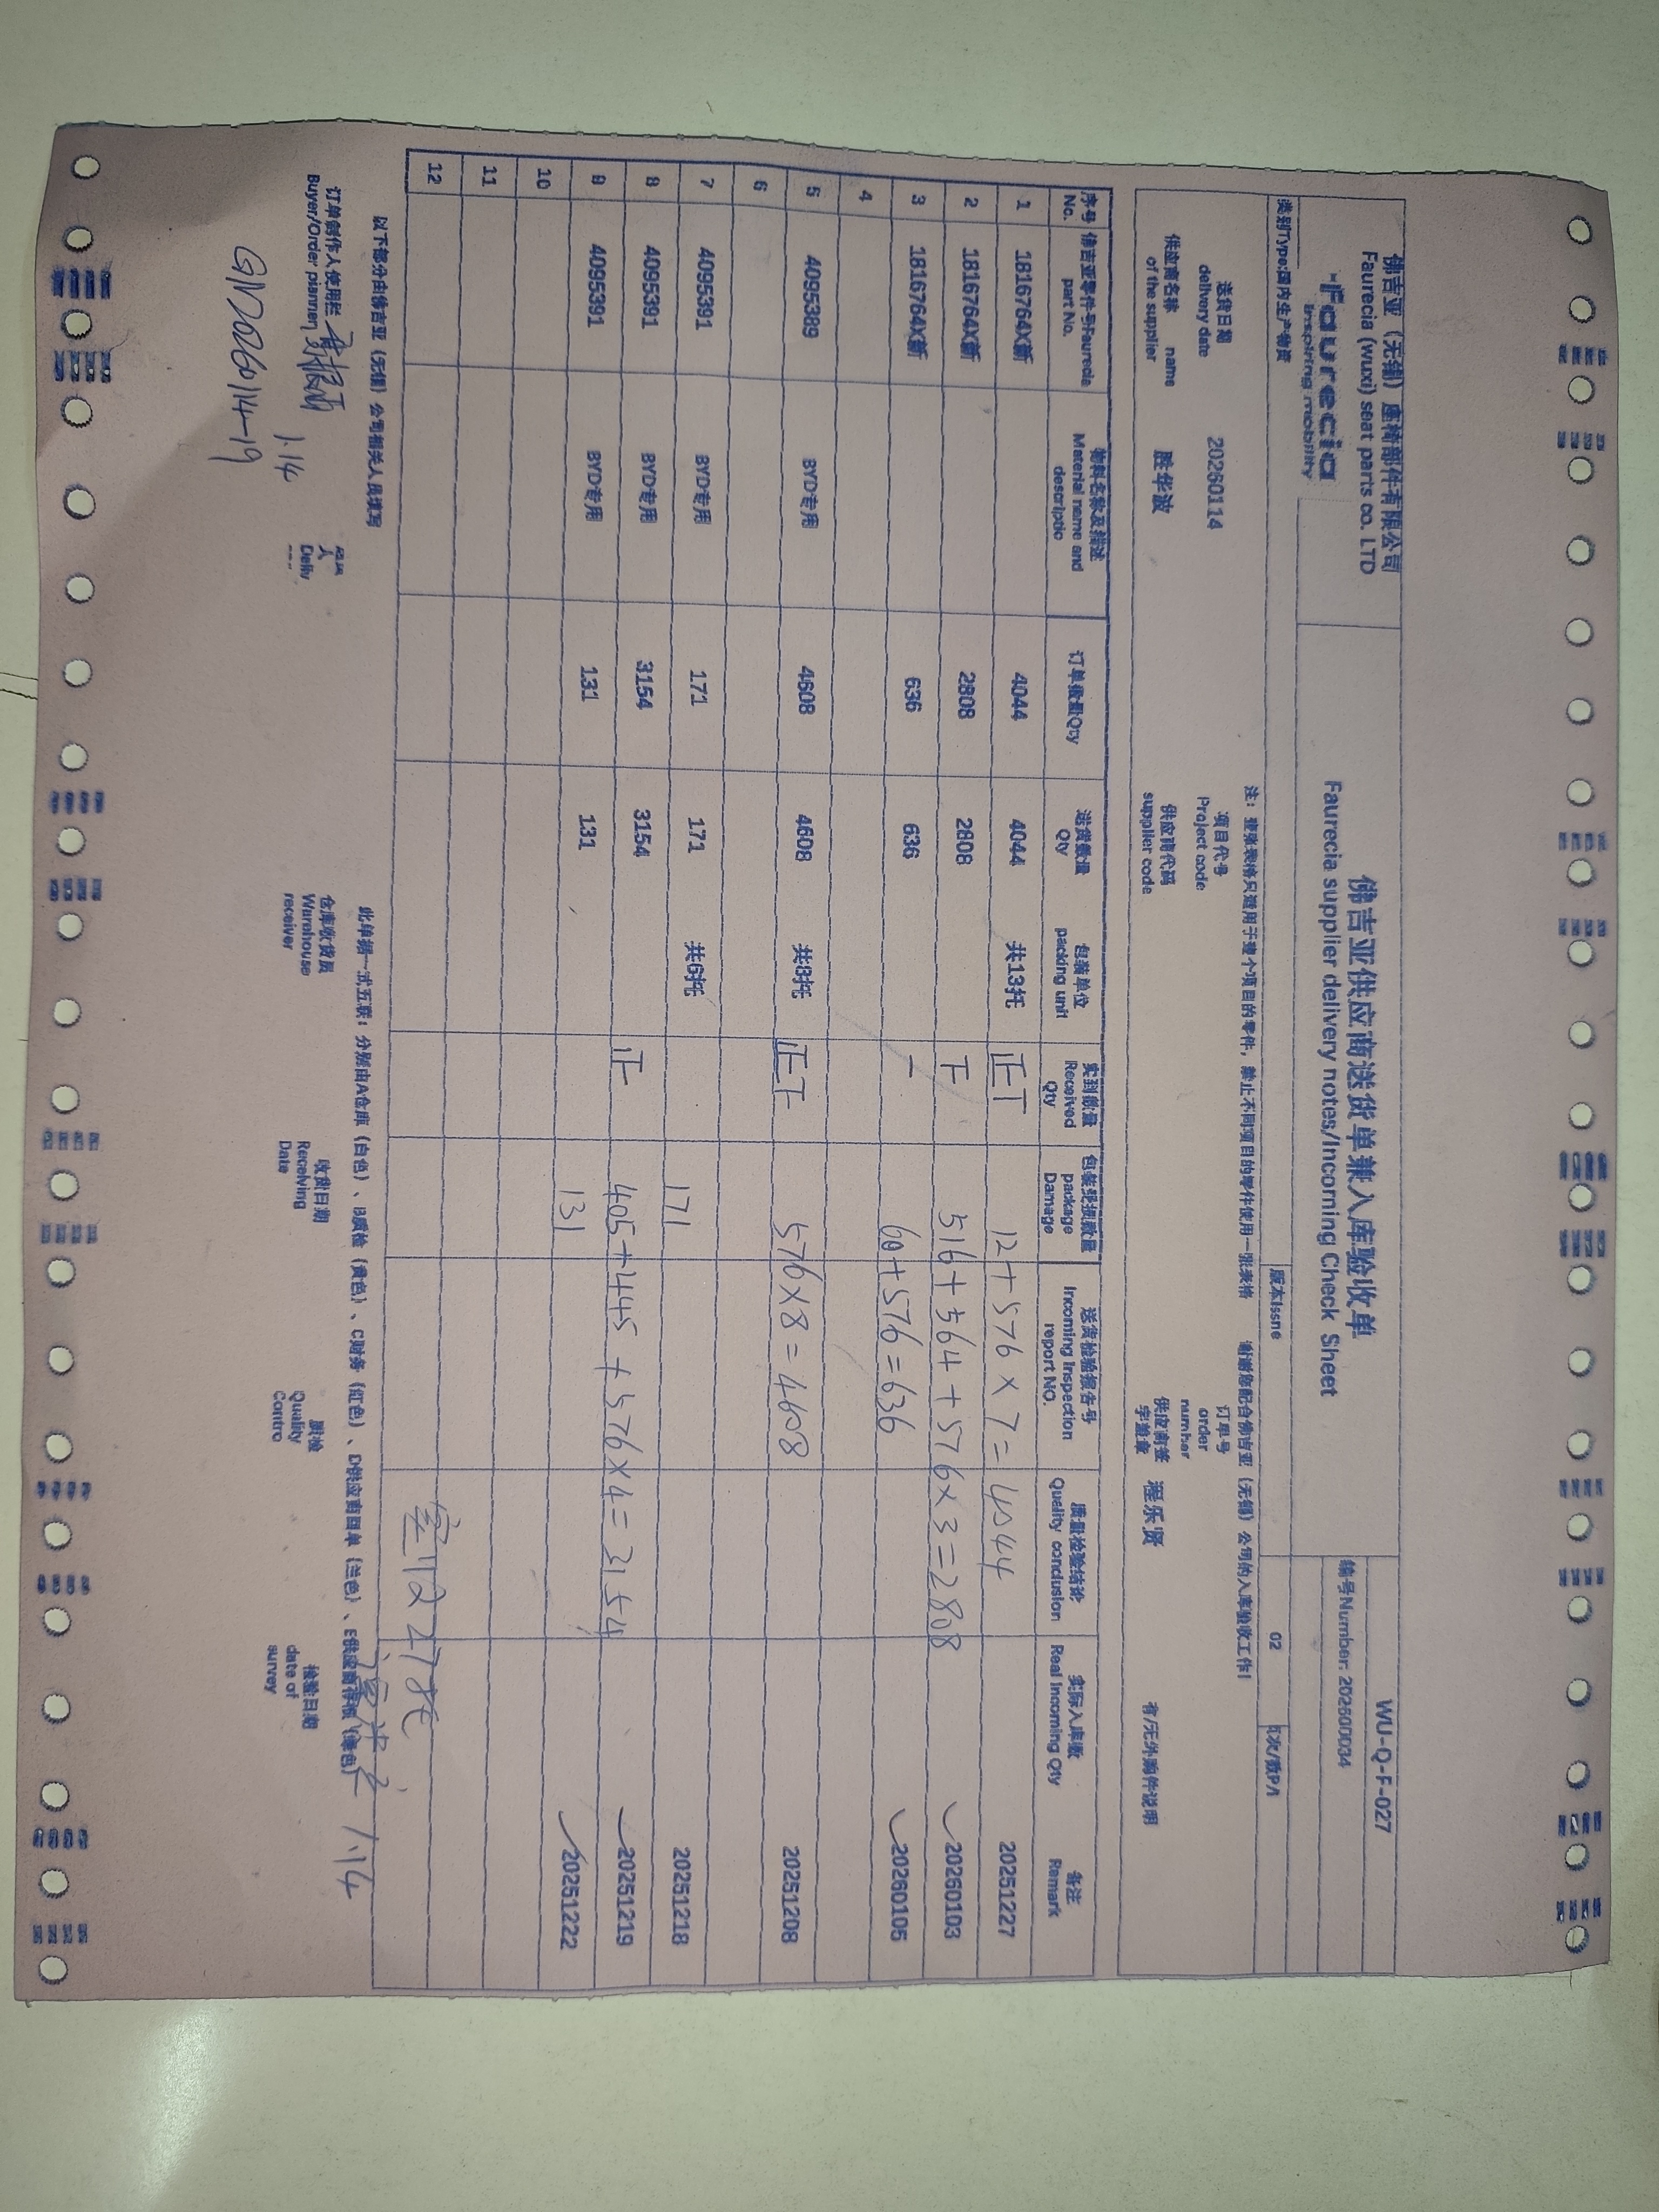 佛吉亚（无锡）座椅部件有限公司
Faurecia (wuxi) seat parts co. LTD
faurecia
inspiring mobility
佛吉亚供应商送货单兼入库验收单
Faurecia supplier delivery notes/Incoming Check Sheet
WU-Q-F-027
编号Number: 202600034
类别Type:国内生产物资 版本Issne 02
注：整张表格只适用于整个项目的零件，禁止不同项目的零件使用一张表格 谢谢您配合佛吉亚（无锡）公司的入库验收工作!
送货日期 delivery date 20260114 项目代号 Project code 订单号 order number
供应商名称 name of the supplier 胜华波 供应商代码 supplier code 供应商签字盖章 程乐贤 有/无外购件说明
序号 No. 佛吉亚零件号Faurecia part No. 物料名称及描述 Material name and descriptio 订单数量Qty 送货数量 Qty 包装单位 packing unit 实到数量 Received Qty 包装受损数量 package Damage 送货检验报告号 Incoming Inspection report NO. 质量检验结论 Quality conclusion 实际入库数 Real Incoming Qty 备注 Remark
1 1816764X新 4044 4044 共13托 正T 12+576×7=4044 20251227
2 1816764X新 2808 2808 516+564+576×3=2808 20260103
3 1816764X新 636 636 一 60+576=636 20260105
4
5 4095389 BYD专用 4608 4608 共8托 576×8=4608 20251208
6
7 4095391 BYD专用 171 171 共6托 171 20251218
8 4095391 BYD专用 3154 3154 正 405+445+576×4=3154 20251219
9 4095391 BYD专用 131 131 131 20251222
10
11
12
实收27托
以下部分由佛吉亚（无锡）公司相关人员填写 此单据一式五联：分别由A仓库（白色）、B质检（黄色）、C财务（红色）、D供应商回单（兰色）、E供应商存根（绿色） 1.14
订单制作人使用栏 Buyer/Order planner 1.14
仓库收货员 Warehouse receiver
收货日期 Receiving Date
质检 Quality Contro
检验日期 date of survey
GN20260114-19